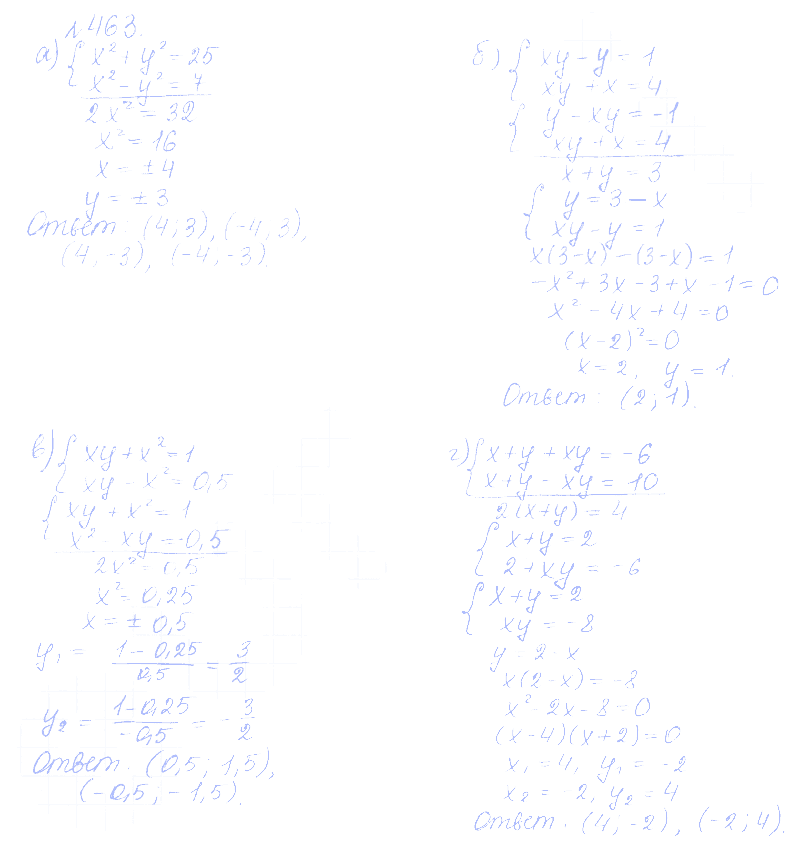 №463.
а) { x² + y² = 25
x² - y² = 7
2x² = 32
x² = 16
x = ±4
y = ±3
Ответ: (4; 3), (-4; 3),
(4; -3), (-4; -3).
б) { xy - y = 1
xy + x = 4
{ y - xy = -1
xy + x = 4
x + y = 3
{ y = 3 - x
xy - y = 1
x(3-x) - (3-x) = 1
-x² + 3x - 3 + x - 1 = 0
x² - 4x + 4 = 0
(x-2)² = 0
x = 2, y = 1.
Ответ: (2; 1).
в) { xy + x² = 1
xy - x² = 0,5
{ xy + x² = 1
x² - xy = -0,5
2x² = 0,5
x² = 0,25
x = ± 0,5
y₁ = (1 - 0,25)/0,5 = 3/2
y₂ = (1-0,25)/(-0,5) = -3/2
Ответ: (0,5; 1,5),
(-0,5; -1,5).
г) { x + y + xy = -6
x + y - xy = 10
2(x+y) = 4
{ x + y = 2
2 + xy = -6
{ x + y = 2
xy = -8
y = 2 - x
x(2-x) = -8
x² - 2x - 8 = 0
(x-4)(x+2) = 0
x₁ = 4, y₁ = -2
x₂ = -2, y₂ = 4
Ответ: (4; -2), (-2; 4).